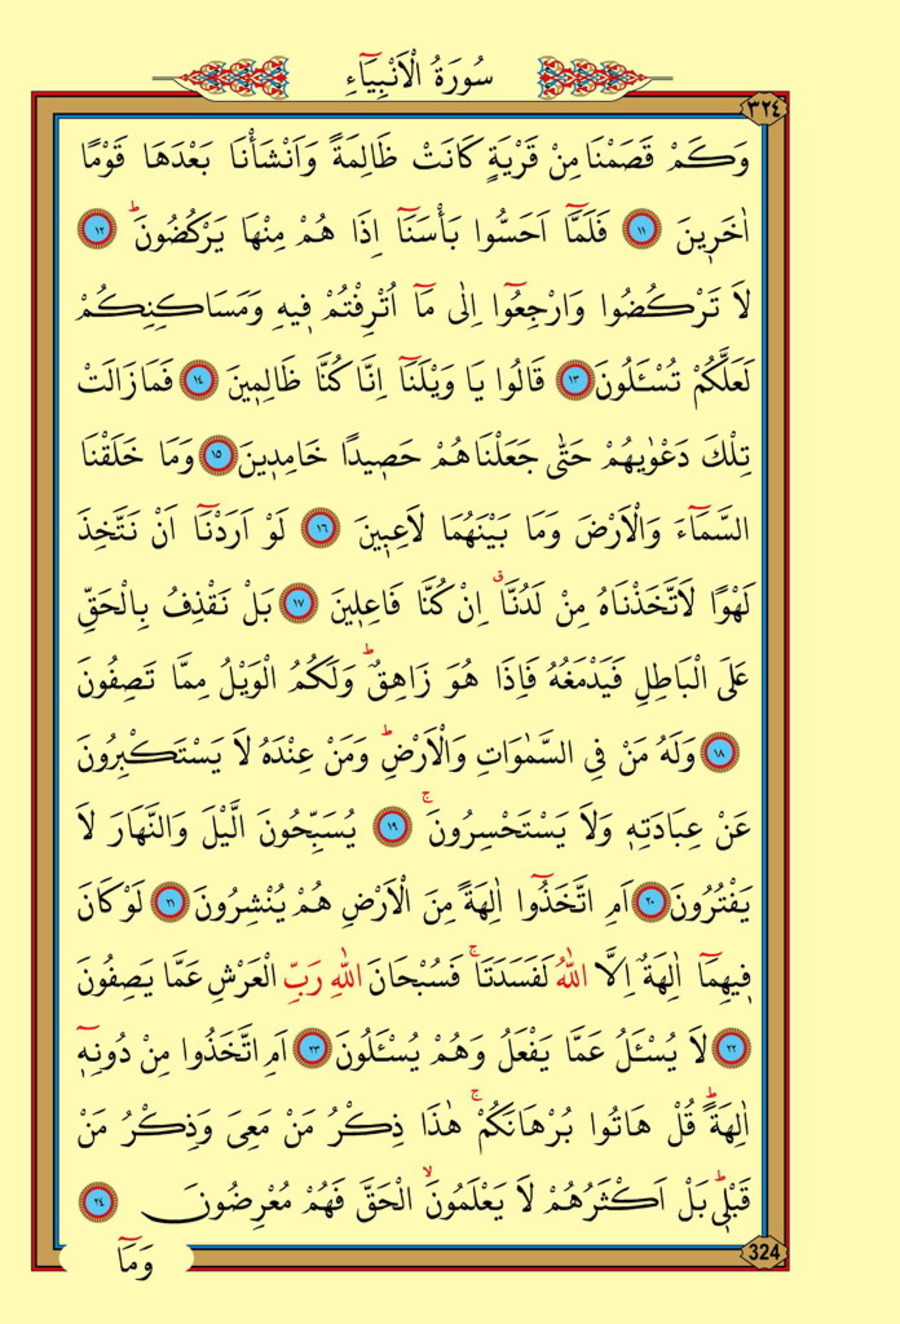 سُورَةُ الْاَنْبِيَٓاءِ
٣٢٤
وَكَمْ قَصَمْنَا مِنْ قَرْيَةٍ كَانَتْ ظَالِمَةً وَاَنْشَأْنَا بَعْدَهَا قَوْمًا
اٰخَرٖينَ ﴿١١﴾ فَلَمَّٓا اَحَسُّوا بَأْسَنَٓا اِذَا هُمْ مِنْهَا يَرْكُضُونَؕ ﴿١٢﴾
لَا تَرْكُضُوا وَارْجِعُٓوا اِلٰى مَٓا اُتْرِفْتُمْ فٖيهِ وَمَسَاكِنِكُمْ
لَعَلَّكُمْ تُسْـَٔلُونَ ﴿١٣﴾ قَالُوا يَا وَيْلَنَٓا اِنَّا كُنَّا ظَالِمٖينَ ﴿١٤﴾ فَمَا زَالَتْ
تِلْكَ دَعْوٰيهُمْ حَتّٰى جَعَلْنَاهُمْ حَصٖيدًا خَامِدٖينَ ﴿١٥﴾ وَمَا خَلَقْنَا
السَّمَٓاءَ وَالْاَرْضَ وَمَا بَيْنَهُمَا لَاعِبٖينَ ﴿١٦﴾ لَوْ اَرَدْنَٓا اَنْ نَتَّخِذَ
لَهْوًا لَاتَّخَذْنَاهُ مِنْ لَدُنَّاۗ اِنْ كُنَّا فَاعِلٖينَ ﴿١٧﴾ بَلْ نَقْذِفُ بِالْحَقِّ
عَلَى الْبَاطِلِ فَيَدْمَغُهُ فَاِذَا هُوَ زَاهِقٌؕ وَلَكُمُ الْوَيْلُ مِمَّا تَصِفُونَ
﴿١٨﴾ وَلَهُ مَنْ فِي السَّمٰوَاتِ وَالْاَرْضِؕ وَمَنْ عِنْدَهُ لَا يَسْتَكْبِرُونَ
عَنْ عِبَادَتِهٖ وَلَا يَسْتَحْسِرُونَۚ ﴿١٩﴾ يُسَبِّحُونَ الَّيْلَ وَالنَّهَارَ لَا
يَفْتُرُونَ ﴿٢٠﴾ اَمِ اتَّخَذُٓوا اٰلِهَةً مِنَ الْاَرْضِ هُمْ يُنْشِرُونَ ﴿٢١﴾ لَوْ كَانَ
فٖيهِمَٓا اٰلِهَةٌ اِلَّا اللّٰهُ لَفَسَدَتَاۚ فَسُبْحَانَ اللّٰهِ رَبِّ الْعَرْشِ عَمَّا يَصِفُونَ
﴿٢٢﴾ لَا يُسْـَٔلُ عَمَّا يَفْعَلُ وَهُمْ يُسْـَٔلُونَ ﴿٢٣﴾ اَمِ اتَّخَذُوا مِنْ دُونِهٖٓ
اٰلِهَةًؕ قُلْ هَاتُوا بُرْهَانَكُمْۚ هٰذَا ذِكْرُ مَنْ مَعِيَ وَذِكْرُ مَنْ
قَبْلٖيؕ بَلْ اَكْثَرُهُمْ لَا يَعْلَمُونَۙ الْحَقَّ فَهُمْ مُعْرِضُونَ ﴿٢٤﴾
324
وَمَٓا